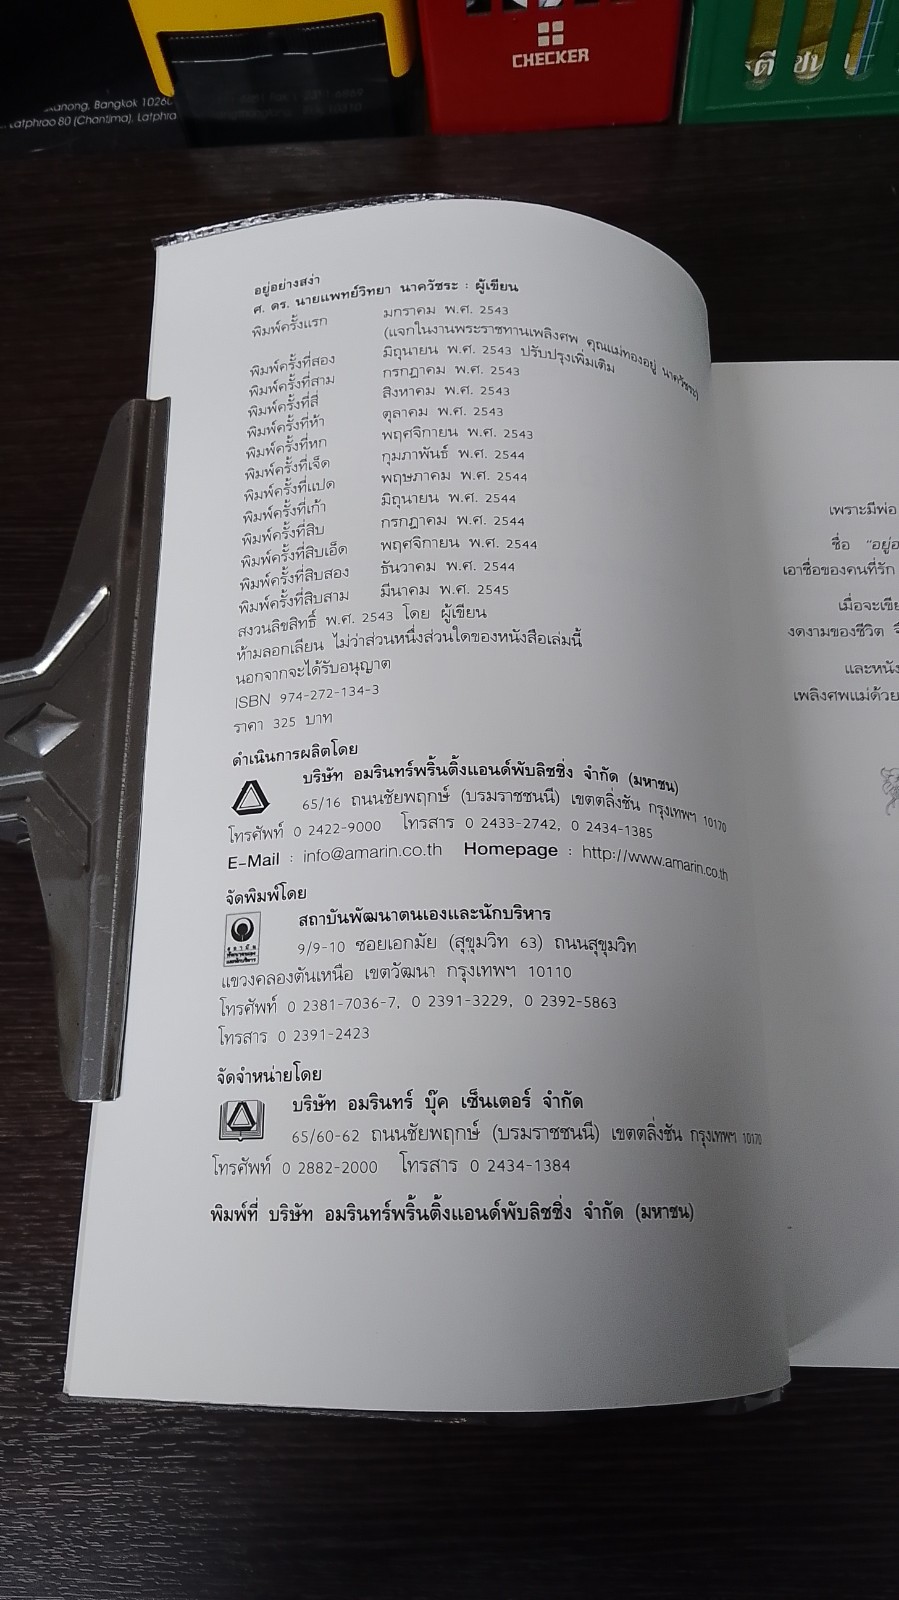 CHECKER
anong, Bangkok 1026
atphrao 80 (Chantima), Latphra
อยู่อย่างสง่า
ศ. ดร. นายแพทย์วิทยา นาควัชระ : ผู้เขียน
พิมพ์ครั้งแรก มกราคม พ.ศ. 2543
(แจกในงานพระราชทานเพลิงศพ คุณแม่ทองอยู่ นาควัชระ)
พิมพ์ครั้งที่สอง มิถุนายน พ.ศ. 2543 ปรับปรุงเพิ่มเติม
พิมพ์ครั้งที่สาม กรกฎาคม พ.ศ. 2543
พิมพ์ครั้งที่สี่ สิงหาคม พ.ศ. 2543
พิมพ์ครั้งที่ห้า ตุลาคม พ.ศ. 2543
พิมพ์ครั้งที่หก พฤศจิกายน พ.ศ. 2543
พิมพ์ครั้งที่เจ็ด กุมภาพันธ์ พ.ศ. 2544
พิมพ์ครั้งที่แปด พฤษภาคม พ.ศ. 2544
พิมพ์ครั้งที่เก้า มิถุนายน พ.ศ. 2544
พิมพ์ครั้งที่สิบ กรกฎาคม พ.ศ. 2544
พิมพ์ครั้งที่สิบเอ็ด พฤศจิกายน พ.ศ. 2544
พิมพ์ครั้งที่สิบสอง ธันวาคม พ.ศ. 2544
พิมพ์ครั้งที่สิบสาม มีนาคม พ.ศ. 2545
สงวนลิขสิทธิ์ พ.ศ. 2543 โดย ผู้เขียน
ห้ามลอกเลียน ไม่ว่าส่วนหนึ่งส่วนใดของหนังสือเล่มนี้
นอกจากจะได้รับอนุญาต
ISBN 974-272-134-3
ราคา 325 บาท
ดำเนินการผลิตโดย
บริษัท อมรินทร์พริ้นติ้งแอนด์พับลิชชิ่ง จำกัด (มหาชน)
65/16 ถนนชัยพฤกษ์ (บรมราชชนนี) เขตตลิ่งชัน กรุงเทพฯ 10170
โทรศัพท์ 0 2422-9000 โทรสาร 0 2433-2742, 0 2434-1385
E-Mail : info@amarin.co.th Homepage : http://www.amarin.co.th
จัดพิมพ์โดย
สถาบันพัฒนาตนเองและนักบริหาร
9/9-10 ซอยเอกมัย (สุขุมวิท 63) ถนนสุขุมวิท
แขวงคลองตันเหนือ เขตวัฒนา กรุงเทพฯ 10110
โทรศัพท์ 0 2381-7036-7, 0 2391-3229, 0 2392-5863
โทรสาร 0 2391-2423
จัดจำหน่ายโดย
บริษัท อมรินทร์ บุ๊ค เซ็นเตอร์ จำกัด
65/60-62 ถนนชัยพฤกษ์ (บรมราชชนนี) เขตตลิ่งชัน กรุงเทพฯ 10170
โทรศัพท์ 0 2882-2000 โทรสาร 0 2434-1384
พิมพ์ที่ บริษัท อมรินทร์พริ้นติ้งแอนด์พับลิชชิ่ง จำกัด (มหาชน)
เพราะมีพ่อ
ชื่อ "อยู่อ
เอาชื่อของคนที่รัก
เมื่อจะเขีย
งดงามของชีวิต
และหนัง
เพลิงศพแม่ด้วย